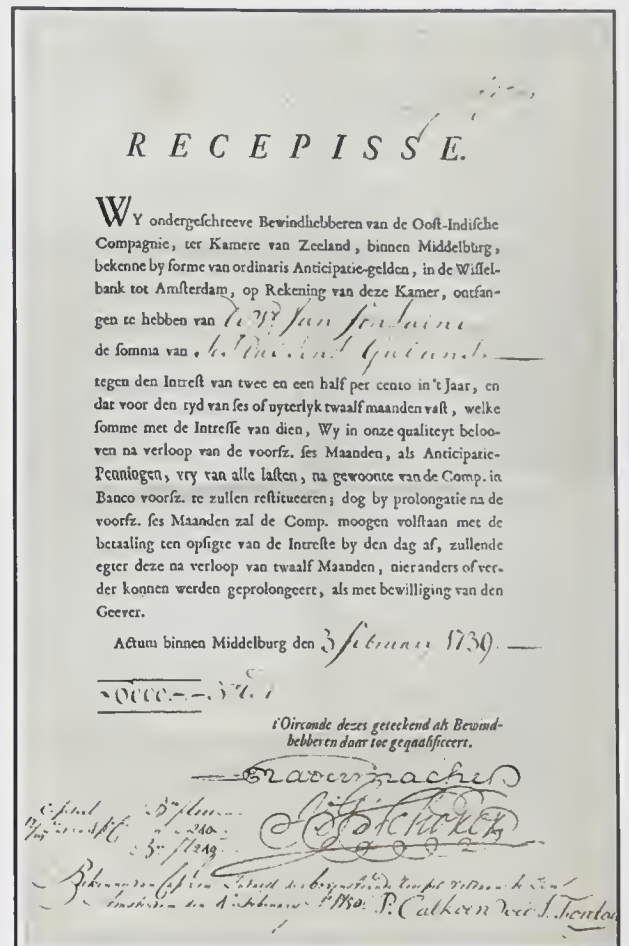 RECEPISSE.
WY ondergeſchreeve Bewindhebberen van de Ooſt-Indiſche
Compagnie, ter Kamere van Zeeland, binnen Middelburg,
bekenne by forme van ordinaris Anticipatie-gelden, in de Wiſſel-
bank tot Amſterdam, op Rekening van deze Kamer, ontfan-
gen te hebben van Jan Fontaine
de ſomma van
tegen den Intreſt van twee en een half per cento in 't Jaar, en
dat voor den tyd van ſes of uyterlyk twaalf maanden vaſt, welke
ſomme met de Intreſſe van dien, Wy in onze qualiteyt beloo-
ven na verloop van de voorſz. ſes Maanden, als Anticipatie-
Penningen, vry van alle laſten, na gewoonte van de Comp. in
Banco voorſz. te zullen reſtitueeren; dog by prolongatie na de
voorſz. ſes Maanden zal de Comp. moogen volſtaan met de
betaaling ten opſigte van de Intreſte by den dag af, zullende
egter deze na verloop van twaalf Maanden, niet anders of ver-
der konnen werden geprolongeert, als met bewilliging van den
Geever.
Actum binnen Middelburg den 3 februari 1739.
t'Oirconde dezes geteekend als Bewind-
hebberen daar toe gequalificeert.
P. Calkoen